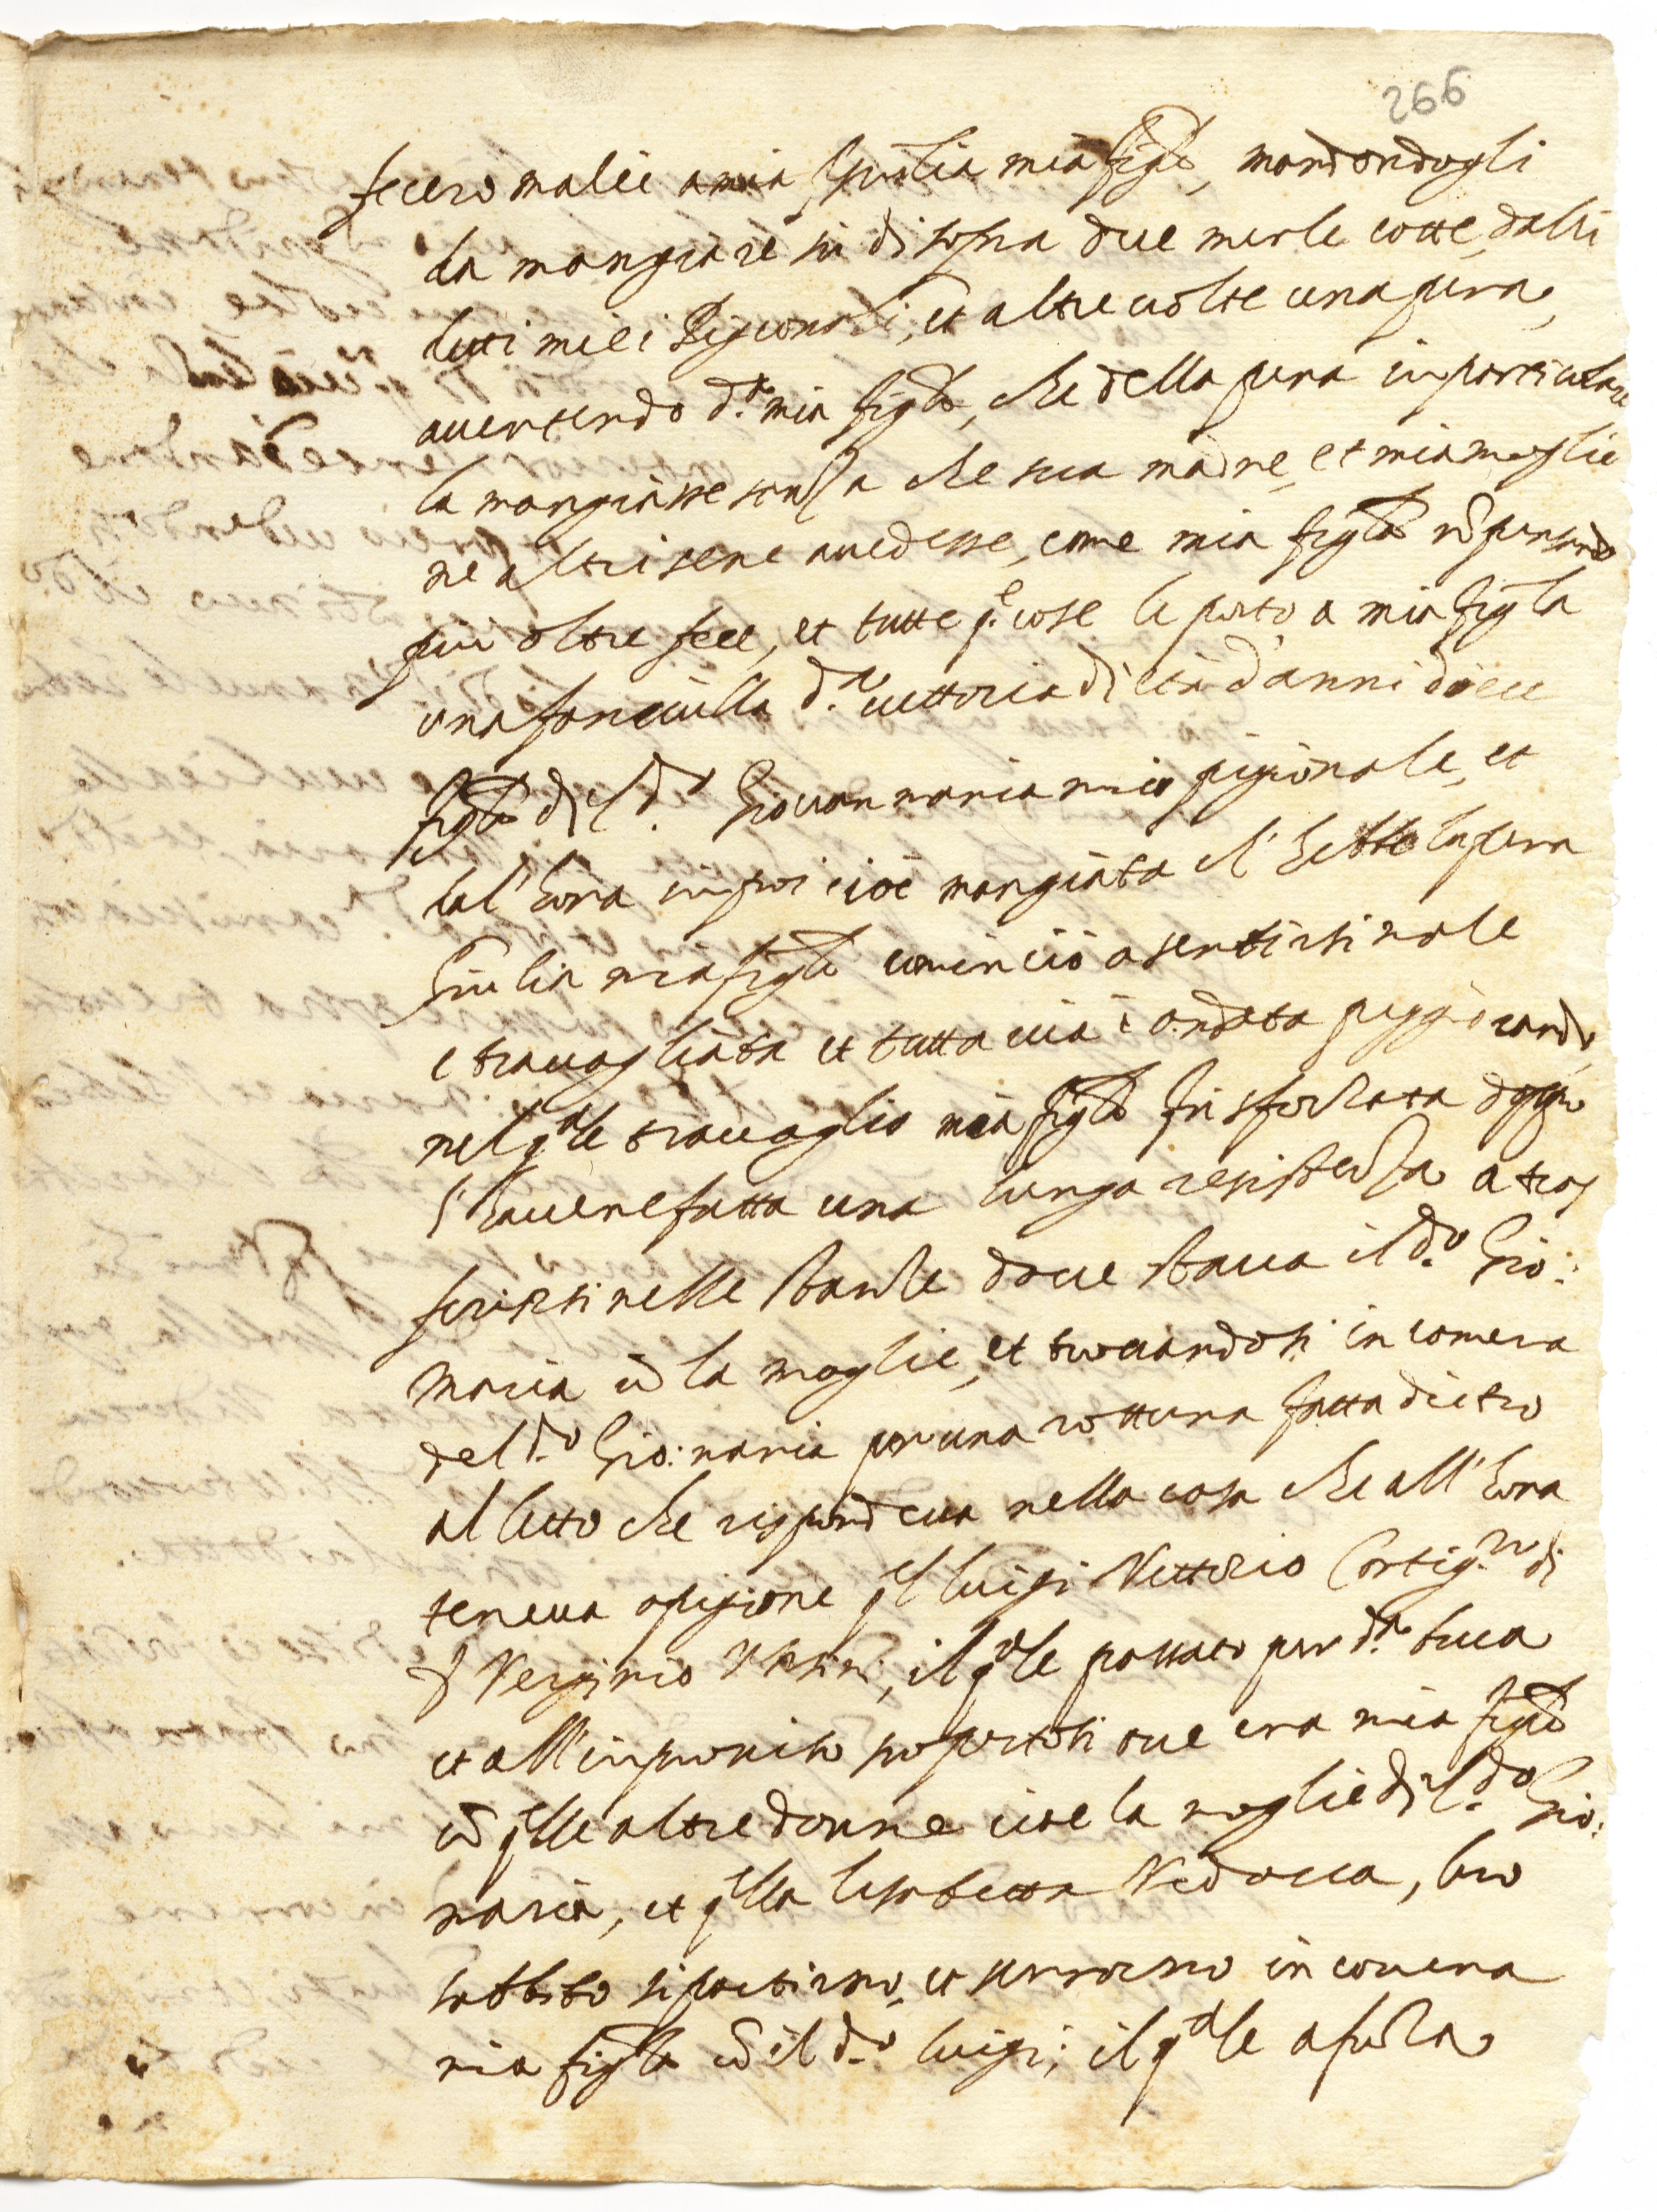 266
fecero malie a mia Giulia mia figla, mandandogli
da mangiare sù di sopra due merle cotte, dalli
detti miei Pigionali, et altre volte una pera,
avertendo d.a mia figla, che della pera in particulare
la mangiasse senza che sua madre, et mia moglie
ne altri sene avedesse, come mia figla nõ pensando
piu oltre fece, et tutte q.e cose le porto a mia figla
una fanciulla d.a vettoria di età d'anni diece
figla del d.o Giovanmaria mio pigionale, et
dal'hora in poi cioè mangiata c'hebbe la pera
Giulia mia figla cominciò a sentirsi male
e travagliata et tutta via è andata peggiorando,
nel qale travaglio mia figla fu sforzata doppo
l'havere fatta una longa resistenza a tras
ferirsi nelle stanze dove stava il d.o Gio:
maria cõ la moglie, et trovandosi in camera
del d.o Gio: maria per una rottura fatta dietro
al letto che rispondeva nella casa che all'hora
teneva a pigione ql luigi Vettorio Cortig.no di
Verginio Ursini, il qale passato per d.a buca
et all'improviso soportosi ove era mia figla
cõ qlle altre donne cioe la moglie del d.o Gio:
maria, et qlla lisabetta Vedova, loro
subbito si partirno, et serrorno in camera
mia figla cõ il d.o luigi; il qale a forza